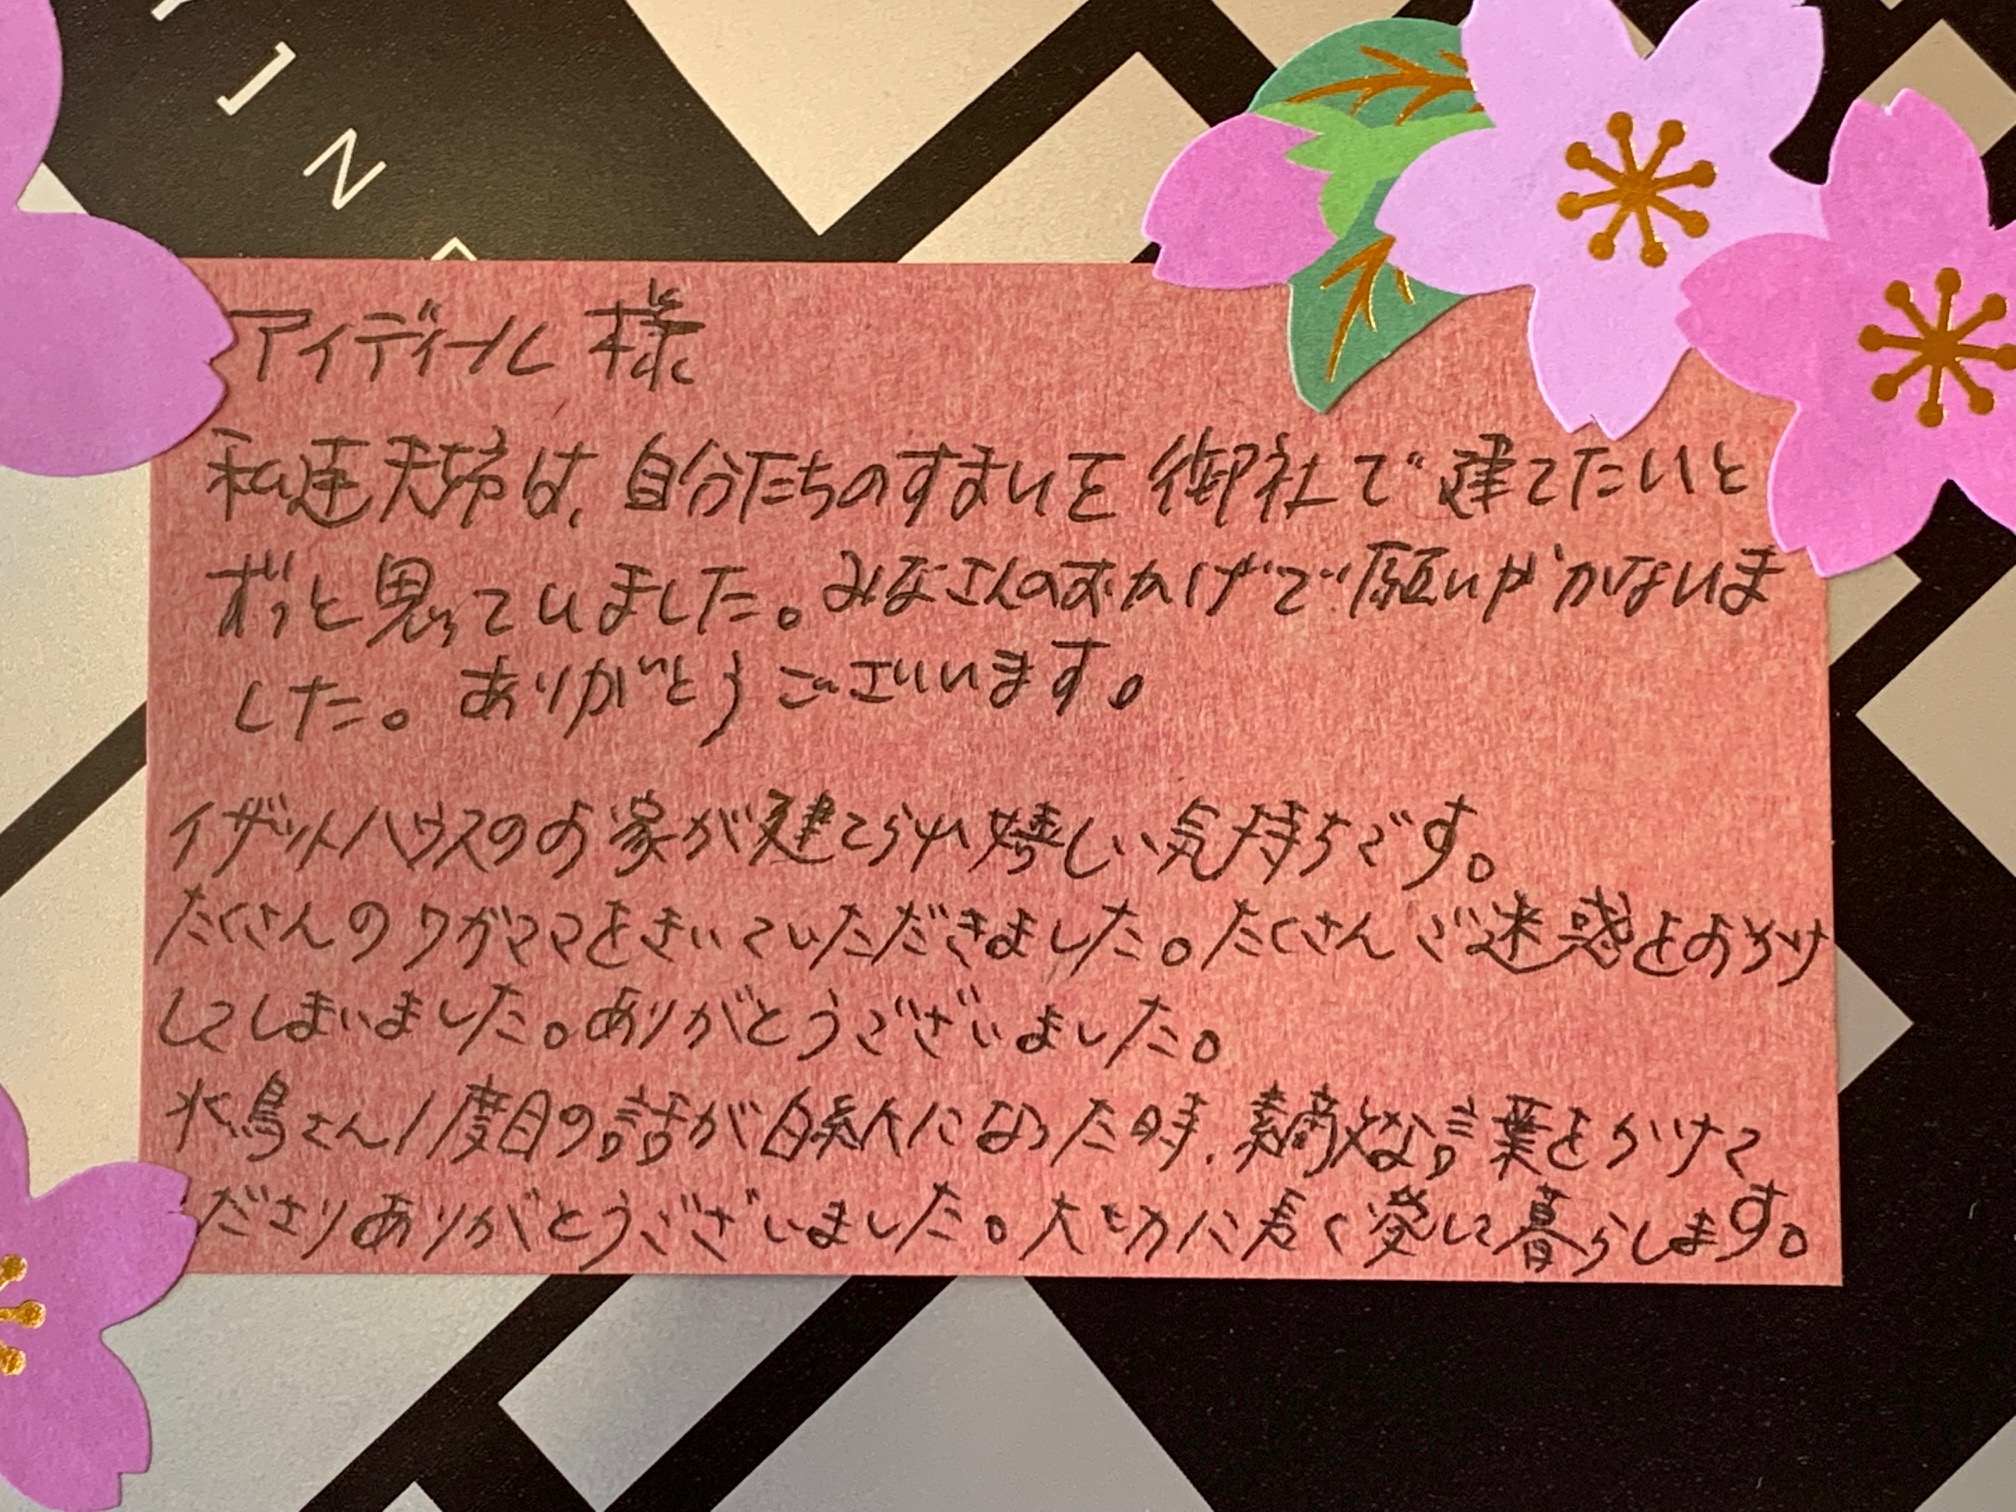 アイディール 様
私達夫婦は、自分たちのすまいを御社で建てたいと
ずっと思っていました。みなさんのおかげで願いがかないま
した。ありがとうございます。
イザットハウスのお家が建てられ嬉しい気持ちです。
たくさんのワガママをきいていただきました。たくさんご迷惑をおかけ
してしまいました。ありがとうございました。
水鳥さん1度目の話が白紙になった時、素敵な言葉をかけて
ださりありがとうございました。大切に長く愛して暮らします。